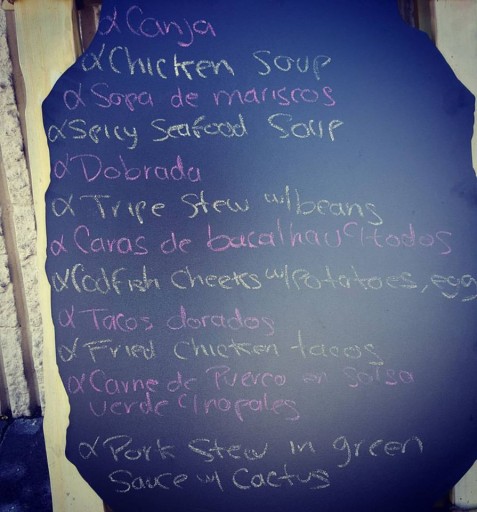 α Canja
α Chicken Soup
α Sopa de mariscos
α Spicy Seafood Soup
α Dobrada
α Tripe Stew w/beans
α Caras de bacalhau c/todos
α Codfish Cheeks w/Potatoes, egg
α Tacos dorados
α Fried Chicken tacos
α Carne de Puerco en Salsa
verde c/nopales
α Pork Stew in green
Sauce w/ Cactus